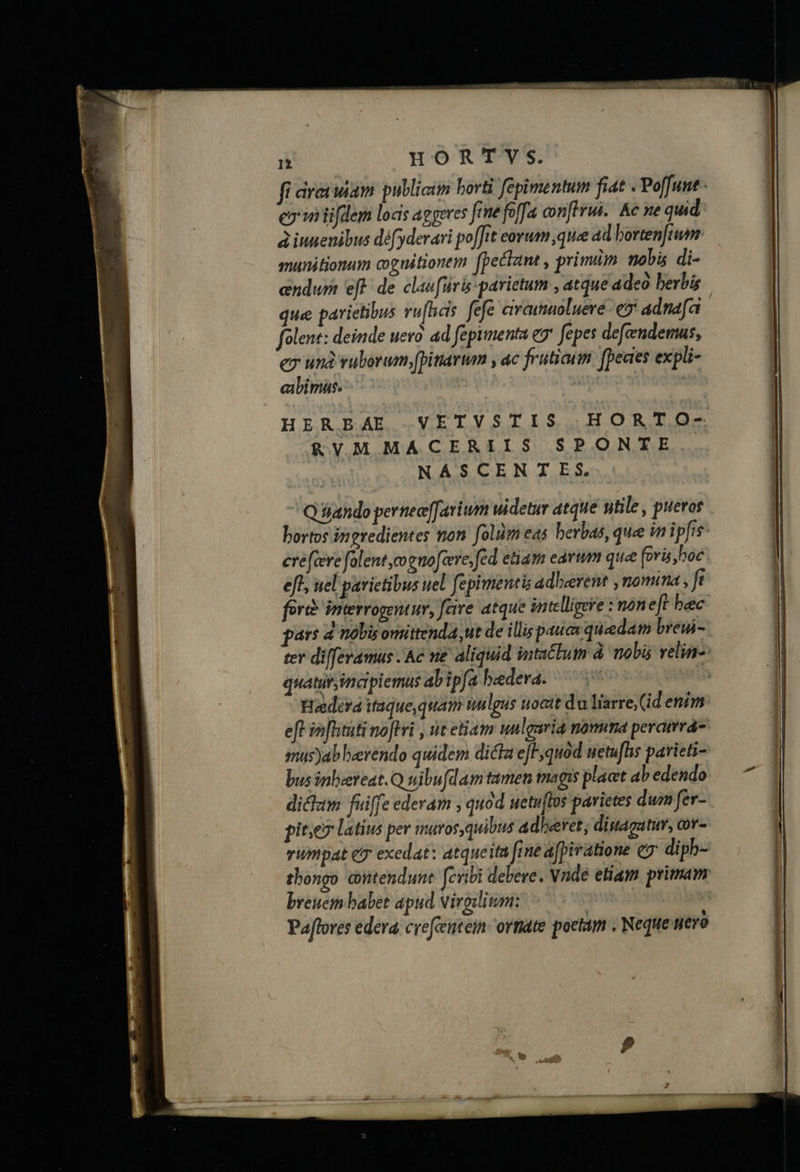 12 HORTVS.
ſi circa uiam publicam horti ſepimentum fiat . Poſſunt
& in iiſdem locis aggeres ſine foſſa conſtrui. Ac ne quid
à iuuenibus deſyderari poſſit eorum, quæ ad hortenſium
munitionum cognitionem ſpectant, primùm nobis di-
cendum eſt de clauſuris parietum , atque adeò herbis
quæ parietibus ruſticis ſeſe circumuoluere & adnaſci
ſolent: deinde uerò ad ſepimenta & ſepes deſcendemus,
& unà ruborum, ſpinarum , ac fruticum ſpecies expli-
cabimus.
HERBAE VETVSTIS HORTO-
RVM MACERIIS SPONTE
NASCENTES.
Quando perneceſſarium uidetur atque utile, pueros
hortos ingredientes non ſolùm eas herbas, quæ in ipſis
creſcere ſolent, cognoſcere, ſed etiam earum quæ foris, hoc
eſt, uel parietibus uel ſepimentis adhærent , nomina , ſi
fortè interrogentur, ſcire atque intelligere : non eſt hæc
pars à nobis omittenda, ut de illis pauca quædam breui-
ter differamus . Ac ne aliquid intactum à nobis relin-
quatur, incipiemus ab ipſa hædera.
Hædera itaque, quam uulgus uocat du liarre, (id enim
eſt inſtituti noſtri , ut etiam uulgaria nomina percurra-
mus) ab hærendo quidem dicta eſt, quòd uetuſtis parieti-
bus inhæreat. Quibuſdam tamen magis placet ab edendo
dictam fuiſſe ederam , quòd uetuſtos parietes dum ſer-
pit, & latius per muros, quibus adhæret, diuagatur, cor-
rumpat & exedat: atque ita ſine aſpiratione & diph-
thongo contendunt ſcribi debere. Vnde etiam primam
breuem habet apud Virgilium:
Paſtores edera creſcentem ornate poetam . Neque uerò